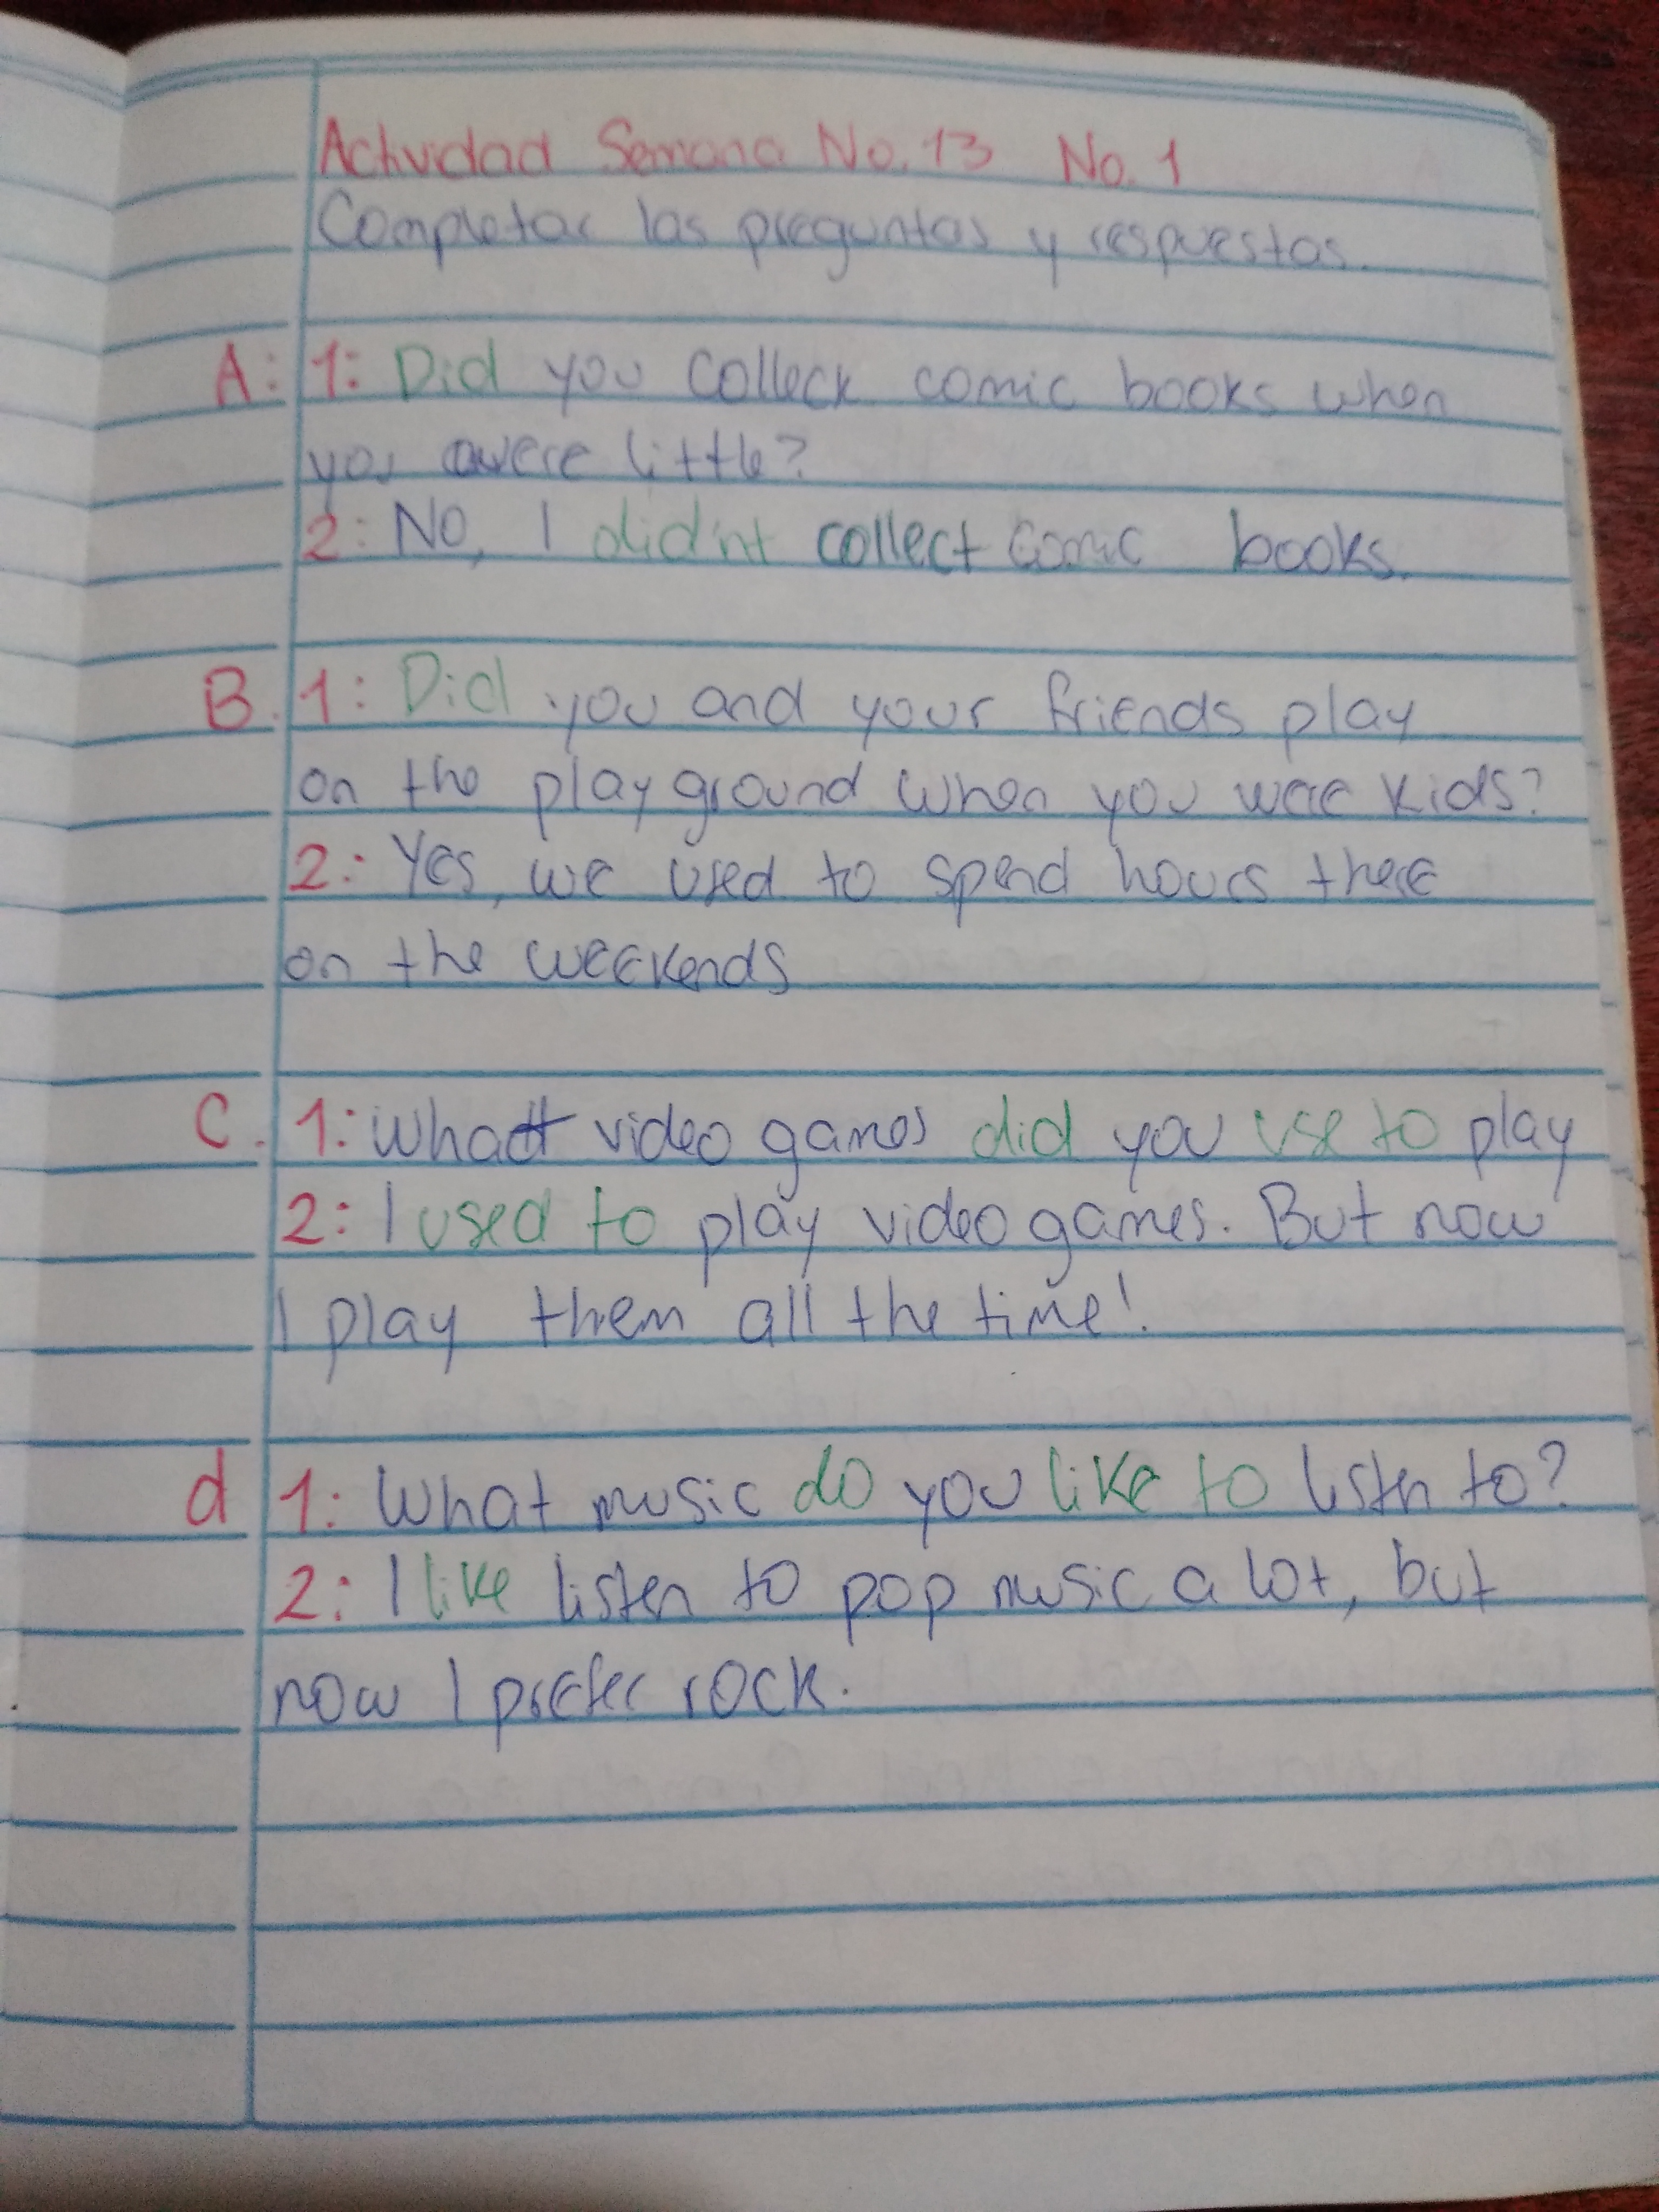 Actividad Semana No. 13 No. 1
Completar las preguntas y respuestas.
A: 1: Did you colleck comic books when
you were little?
2: No, I did'nt collect comic books.
B. 1: Did you and your friends play
on the play ground when you were kids?
2: Yes, we used to spend hours there
on the weekends
C. 1: What video games did you use to play
2: I used to play video games. But now
I play them all the time!
d 1: What music do you like to listen to?
2: I like listen to pop music a lot, but
now I prefer rock.